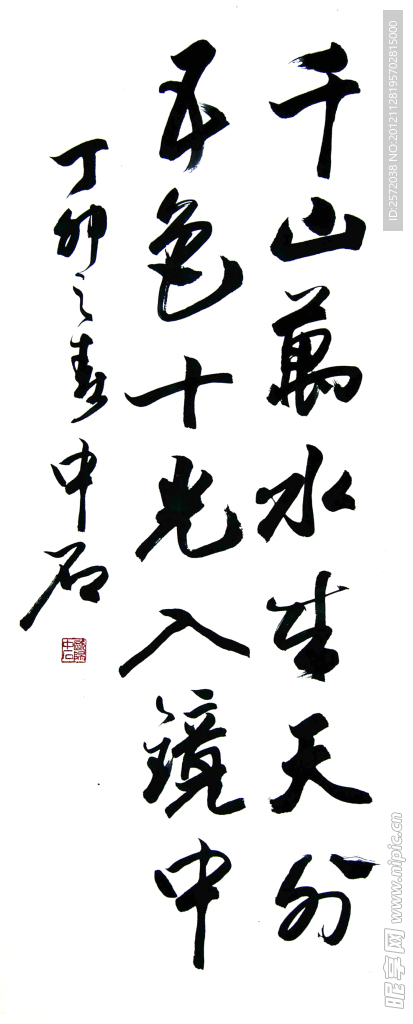 千山萬水生天外
五色十光入鏡中
丁卯之春中石
NO:20121128195702815000 ID:2572038
昵享网 www.nipic.cn